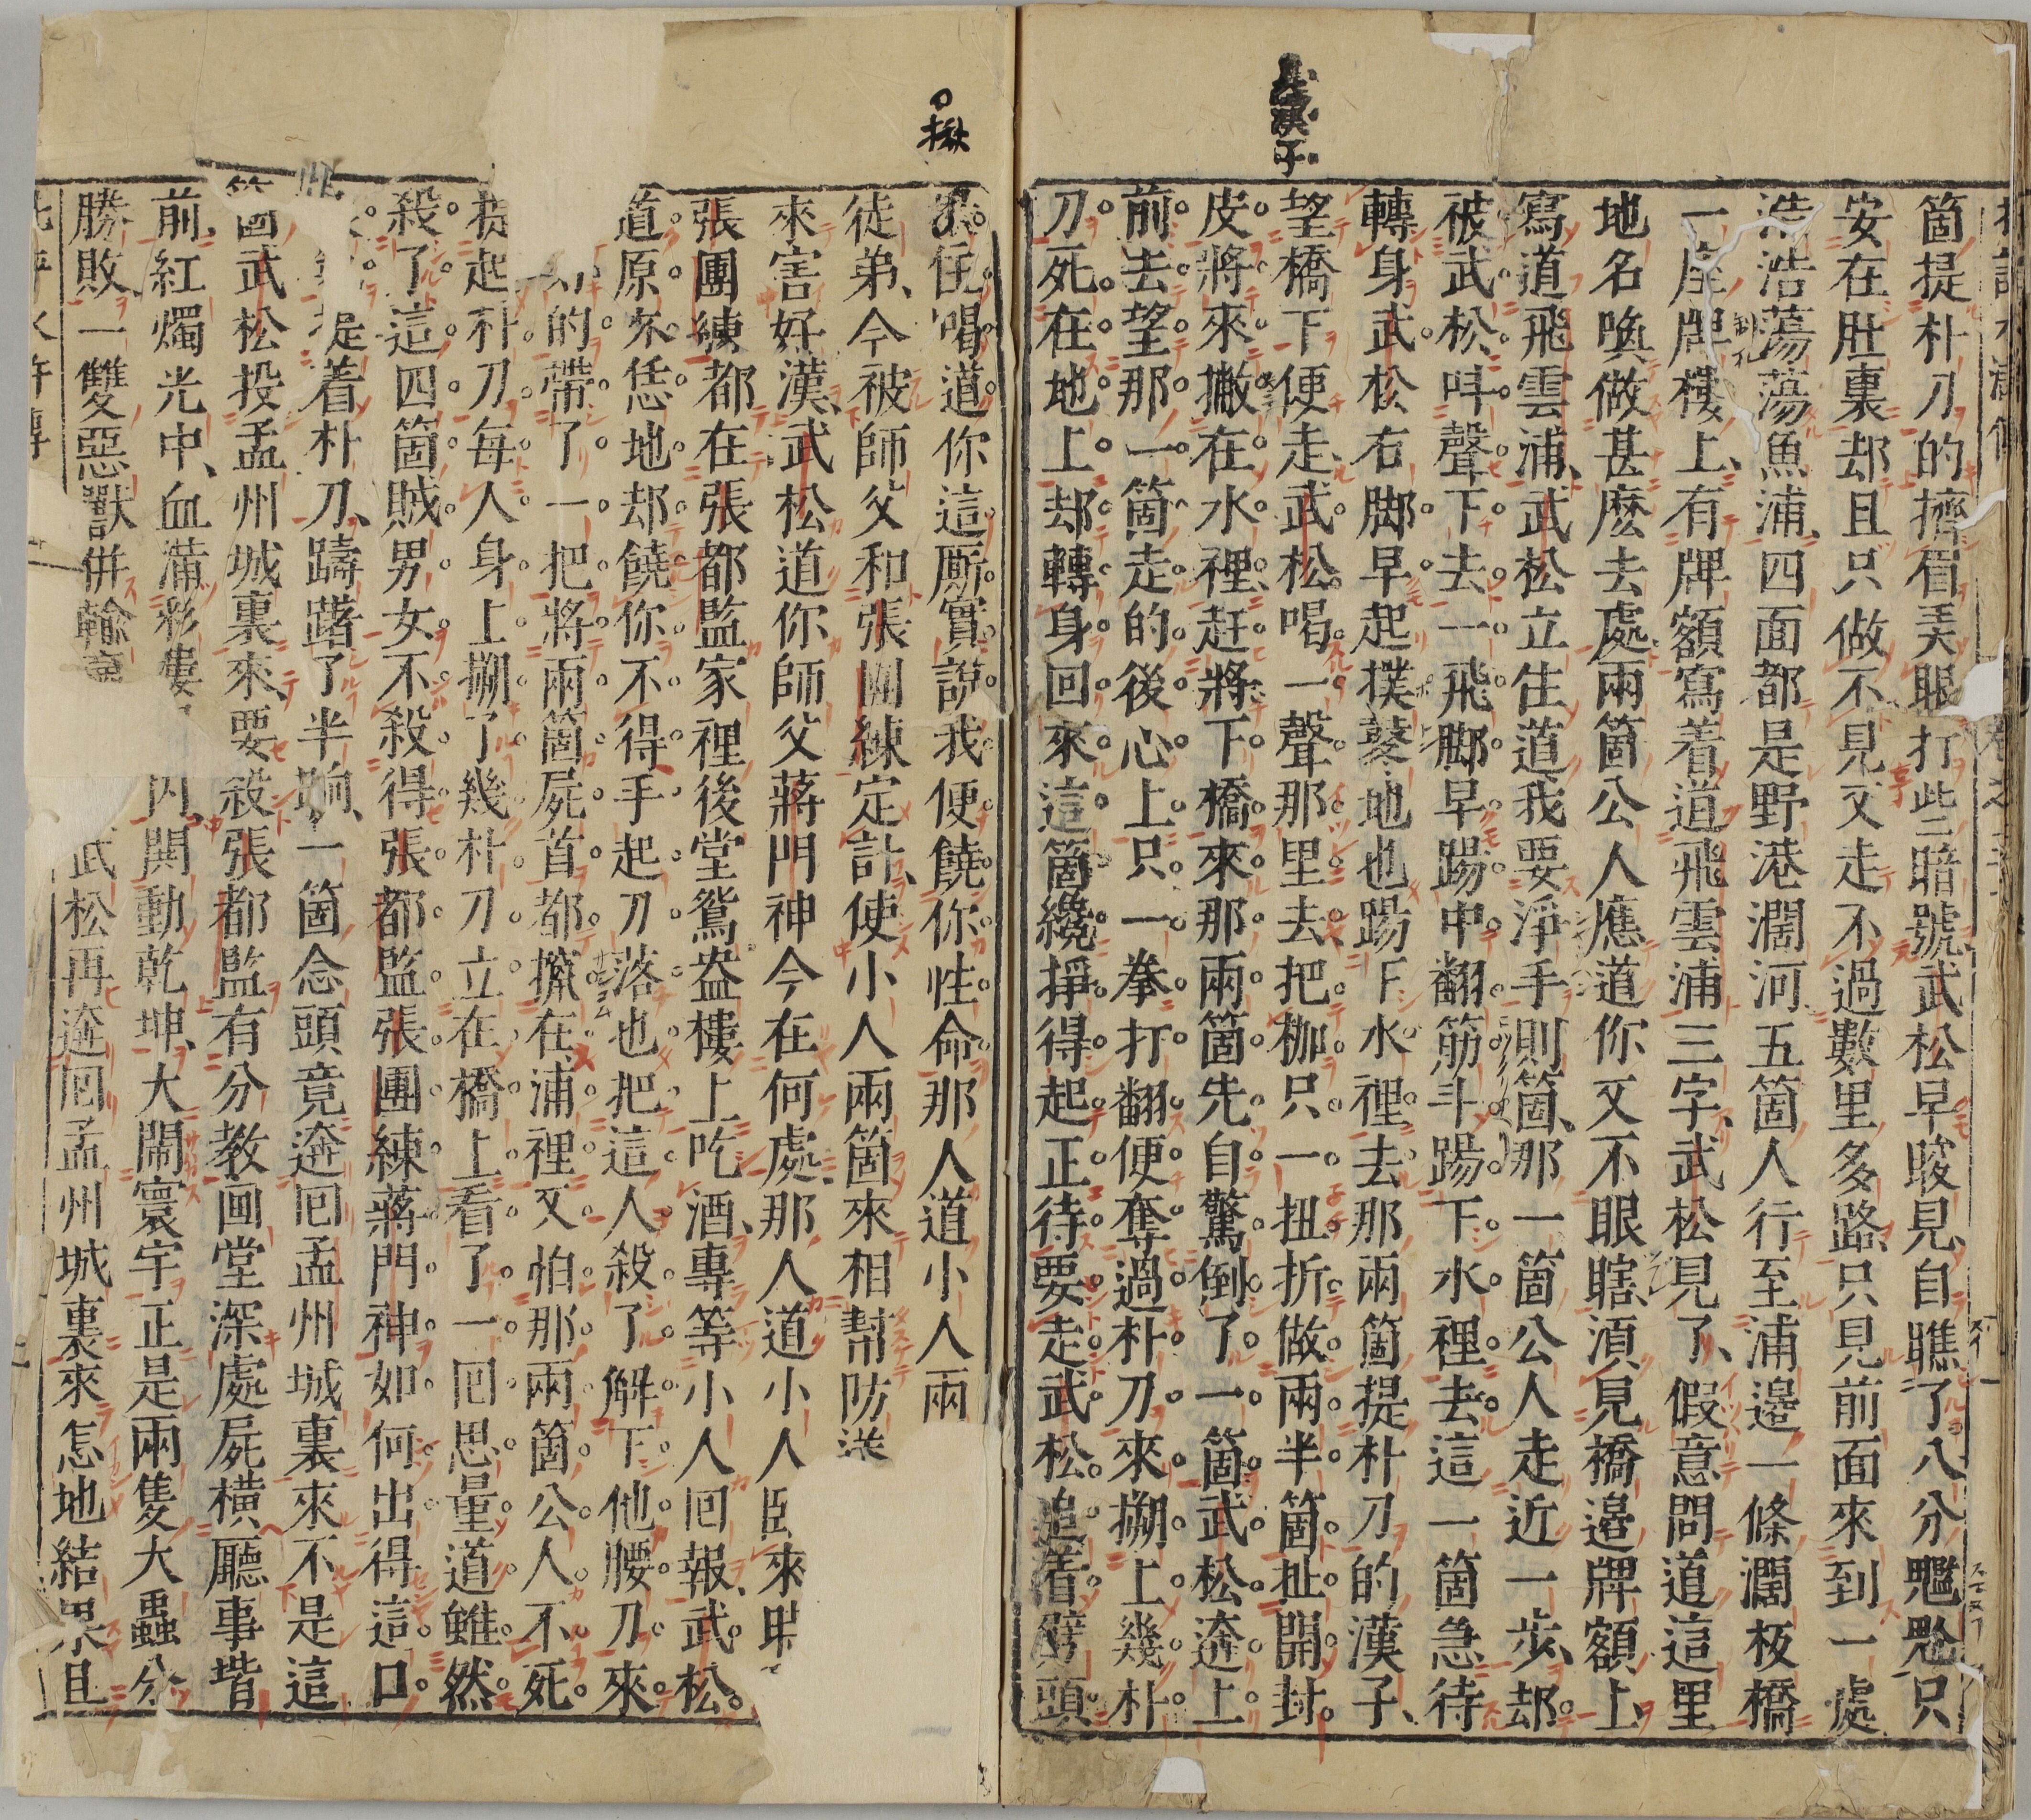 箇提朴刀的擠眉弄眼打些暗號武松早睃見自瞧了八分尷尬只
安在肚裏却且只做不見又走不過數里多路只見前面來到一處
浩浩蕩蕩魚浦四面都是野港濶河五箇人行至浦邊一條濶板橋
一座牌樓上有牌額寫着道飛雲浦三字武松見了假意問道這里
地名喚做甚麽去處兩箇公人應道你又不眼瞎須見橋邊牌額上
寫道飛雲浦武松立住道我要淨手則箇那一箇公人走近一步却
被武松呌聲下去一飛脚早踢中翻筋斗踢下水裡去這一箇急待
轉身武松右脚早起撲鼕地也踢下水裡去那兩箇提朴刀的漢子
望橋下便走武松喝一聲那里去把枷只一扭折做兩半箇扯開封
皮將來撇在水裡赶將下橋來那兩箇先自驚倒了一箇武松逩上
前去望那一箇走的後心上只一拳打翻便奪過朴刀來搠上幾朴
刀死在地上却轉身回來這箇纔掙得起正待要走武松追着劈頭
揪
住喝道你這厮實說我便饒你性命那人道小人兩
徒弟今被師父和張團練定計使小人兩箇來相幫防送
來害好漢武松道你師父蔣門神今在何處那人道小人臨來時
張團練都在張都監家裡後堂鴛鴦樓上吃酒專等小人囘報武松
道原來恁地却饒你不得手起刀落也把這人殺了解下他腰刀來
的帶了一把將兩箇屍首都攛在浦裡又怕那兩箇公人不死
提起朴刀每人身上搠了幾朴刀立在橋上看了一囘思量道雖然
殺了這四箇賊男女不殺得張都監張團練蔣門神如何出得這口
提着朴刀躊躇了半晌一箇念頭竟逩囘孟州城裏來不是這
箇武松投孟州城裏來要殺張都監有分教画堂深處屍橫廳事堦
前紅燭光中血滿彩樓內閧動乾坤大鬧寰宇正是兩隻大蟲分
勝敗一雙惡獸併輸贏
武松再逩囘孟州城裏來怎地結果且